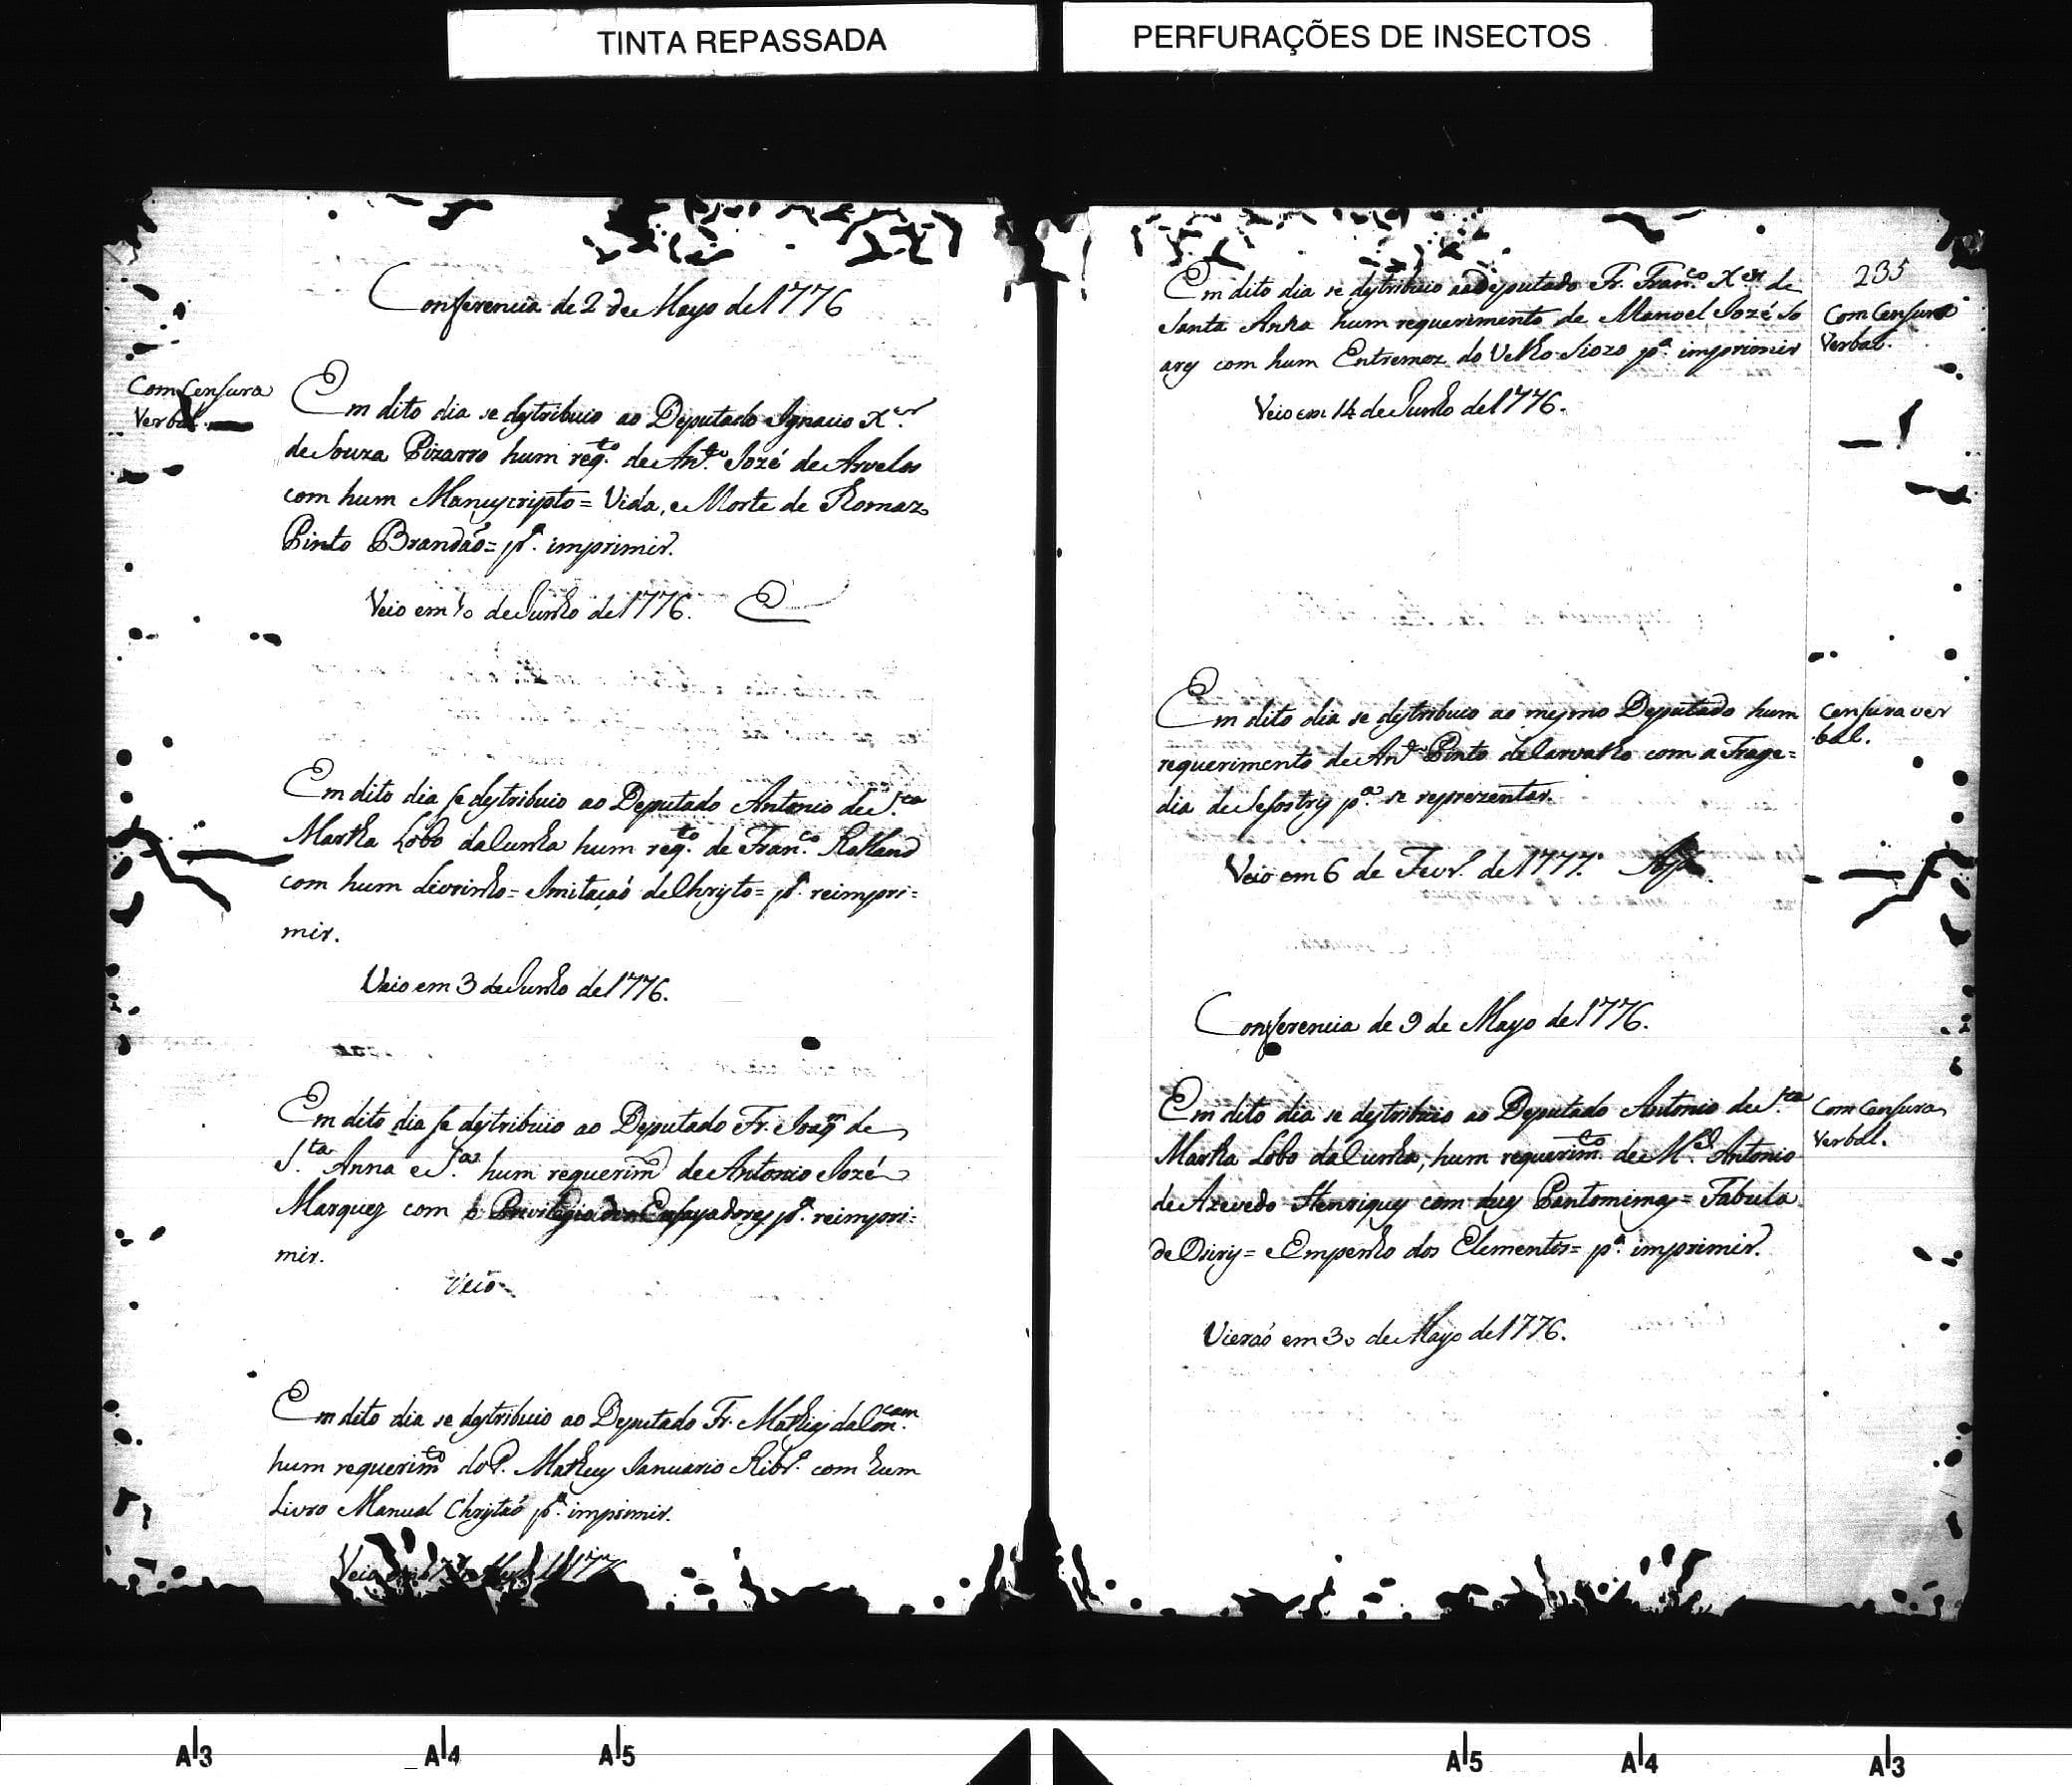 TINTA REPASSADA
PERFURAÇÕES DE INSECTOS
Conferencia de 2 de Mayo de 1776
Com Censura
Verbal.
Em dito dia se destribuio ao Deputado Ignacio X.er
de Souza Pizarro hum req.to de Ant.o Jozé de Arvelos
com hum Manuscripto = Vida, e Morte de Thomaz
Pinto Brandaõ = p.a imprimir.
Veio em 10 de Junho de 1776.
Em dito dia se destribuio ao Deputado Antonio de S.ta
Martha Lobo da Cunha hum req.to de Fran.co Rolland
com hum Livrinho = Imitaçaõ de Christo = p.a reimpri=
mir.
Veio em 3 de Junho de 1776.
Em dito dia se destribuio ao Deputado Fr. Joaq.m de
S.ta Anna e S.a hum requerim.to de Antonio Jozé
Marques com o Privilegio dos Ensayadores p.a reimpri=
mir.
Veio
Em dito dia se destribuio ao Deputado Fr. Mathias da Con.cam
hum requerim.to do P. Matheus Januario Ribr.o com hum
Livro Manual Christaõ p.a imprimir.
Veio
235
Em dito dia se destribuio ao Deputado Fr. Fran.co X.er de
Santa Anna hum requerimento de Manoel Jozé So
ares com hum Entremez do Velho Siozo p.a imprimir
Com Censura
Verbal.
Veio em 14 de Junho de 1776.
Em dito dia se destribuio ao mesmo Deputado hum
requerimento de Ant.o Pinto de Carvalho com a Trage=
dia de Sesostris p.a se reprezentar.
Censura ver
bal.
Veio em 6 de Fevr.o de 1777.
Conferencia de 9 de Mayo de 1776.
Em dito dia se destribuio ao Deputado Antonio de S.ta
Martha Lobo da Cunha, hum requerim.to de M.el Antonio
de Azevedo Henriques com duas Pantomimas = Fabula
de Osiris = e Empenho dos Elementos = p.a imprimir.
Com Censura
Verbal.
Vieraõ em 30 de Mayo de 1776.
A3
A4
A5
A5
A4
A3